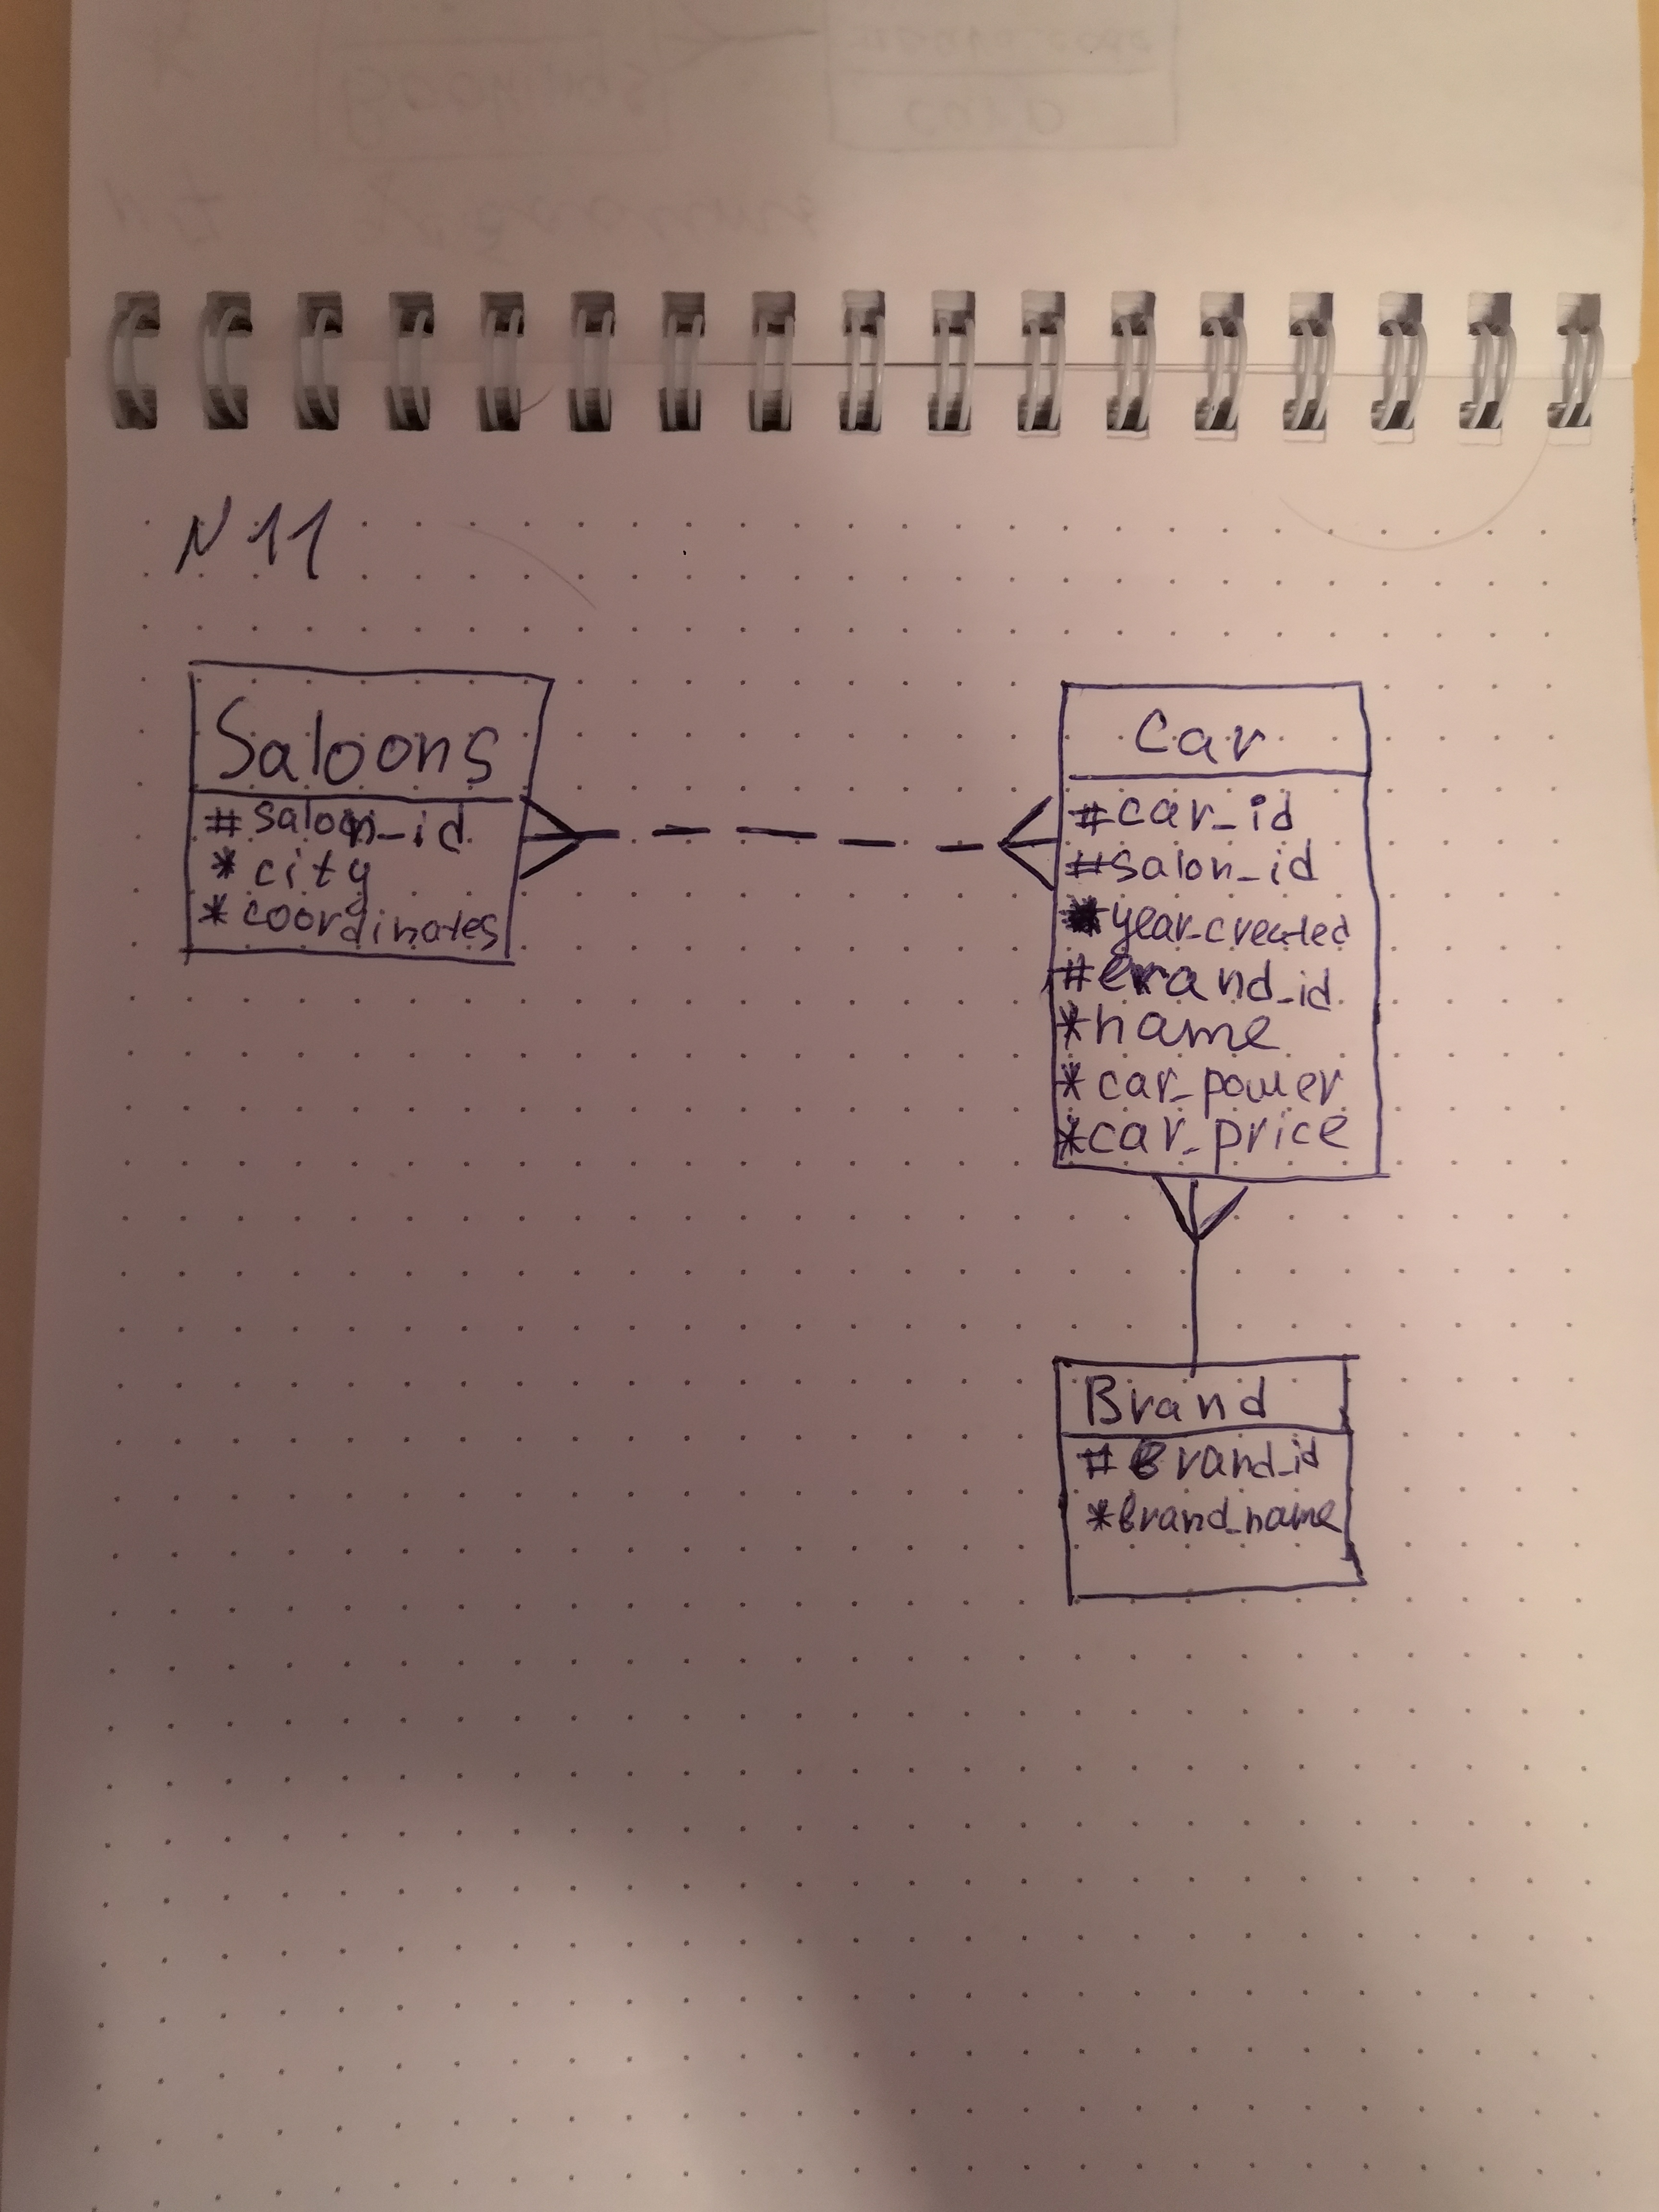 N 11
Saloons
# saloon_id
* city
* coordinates
Car
#car_id
#salon_id
*year_created
#brand_id
*name
* car_power
*car_price
Brand
# Brand_id
*brand_name